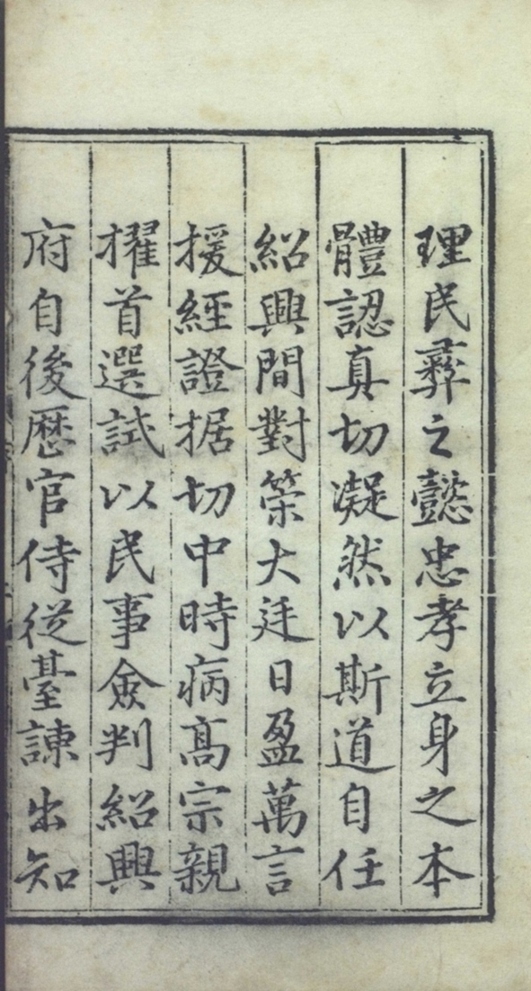 理民彛之懿忠孝立身之本
體認真切凝然以斯道自任
紹興間對策大廷日盈萬言
援經證据切中時病髙宗親
擢首選試以民事僉判紹興
府自後歴官侍從臺諫出知